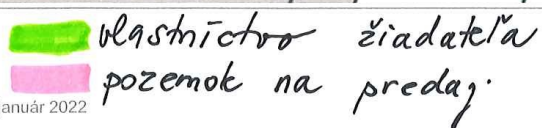 vlastníctvo žiadateľa
pozemok na predaj.
anuár 2022